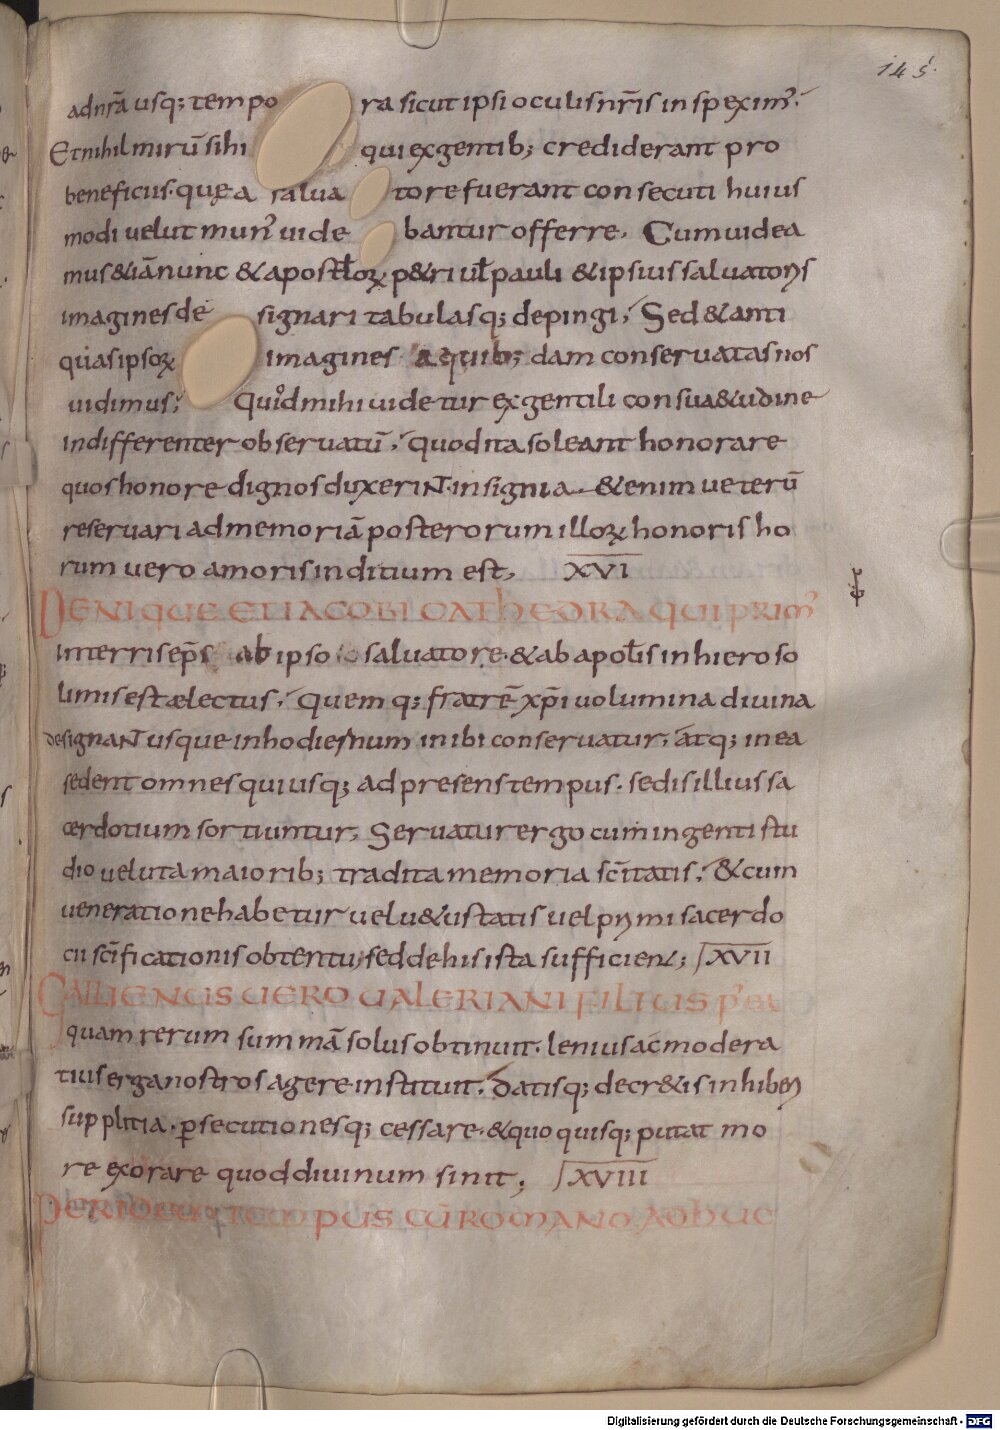 145
adnr̄a usq; tempora sicut ipsi oculis nr̄is inspexim᾽.
Et nihil mirū si hi qui ex gentib; crediderant pro
beneficus. quę a saluatore fuerant consecuti huius
modi uelut mun᾽ uidebantur offerre. Cum uidea
mus & iā nunc & apostl̄oꝝ p&ri ul̄ pauli & ipsius saluatoris
imagines designari tabulasq; depingi; Sed & anti
quas ipsoꝝ imagines a quib;dam conseruatas nos
uidimus; Quod mihi uidetur ex gentili consu&udine
indifferenter obseruatū; quod ita soleant honorare
quos honore dignos duxerint. insignia & enim ueterū
reseruari ad memoriā posterorum illoꝝ honoris ho
rum uero amoris inditium est, XVI
DENIQUE ET IACOBI CATHEDRA QUI PRIM᾽
Interris ep̄s ab ipso saluatore. & ab apol̄is in hieroso
limis est ælectus; Quemq; fratrē xp̄i uolumina diuina
designant usque in hodiernum inibi conseruatur; atq; in ea
sedent omnes qui usq; ad presens tempus. sedis illius sa
cerdotium sortiuntur; Seruatur ergo cum ingenti stu
dio uelut a maiorib; tradita memoria sc̄itatis; & cum
ueneratione habetur uel u&ustatis uel primi sacerdo
cii sc̄ificationis obtentu; sed de his ista sufficient; XVII
GALLIENUS UERO UALERIANI FILIUS P
quam rerum summā solus obtinuit. lenius ac modera
tius erga nostros agere instituit. Datisq; decr&is inhiberi
supplitia. ꝑsecutionesq; cessare. & quo quisq; putat mo
re exorare quod diuinum sinit; XVIII
PER IDEM TEMPUS CŪ ROMANO ADHUC
Digitalisierung gefördert durch die Deutsche Forschungsgemeinschaft - DFG